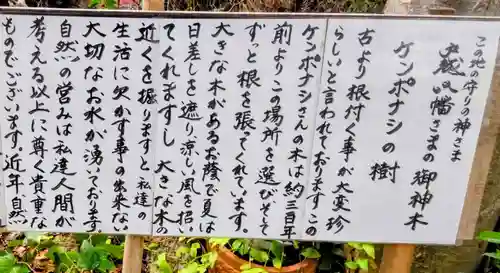 この地の守りの神さま
蔵八幡さまの御神木
ケンポナシの樹
古より根付く事が大変珍
らしいと言われております この
ケンポナシさんの木は約三百年
前よりこの場所を選びそして
ずっと根を張てくれています。
大きな木があるお陰で夏は
日差しを遮り涼しい風を招い
てくれますし 大きな木の
近くを掘りますと私達の
生活に欠かす事の出来ない
大切なお水が湧いております
自然の営みは私達人間が
考える以上に尊く貴重な
ものでございます。近年自然